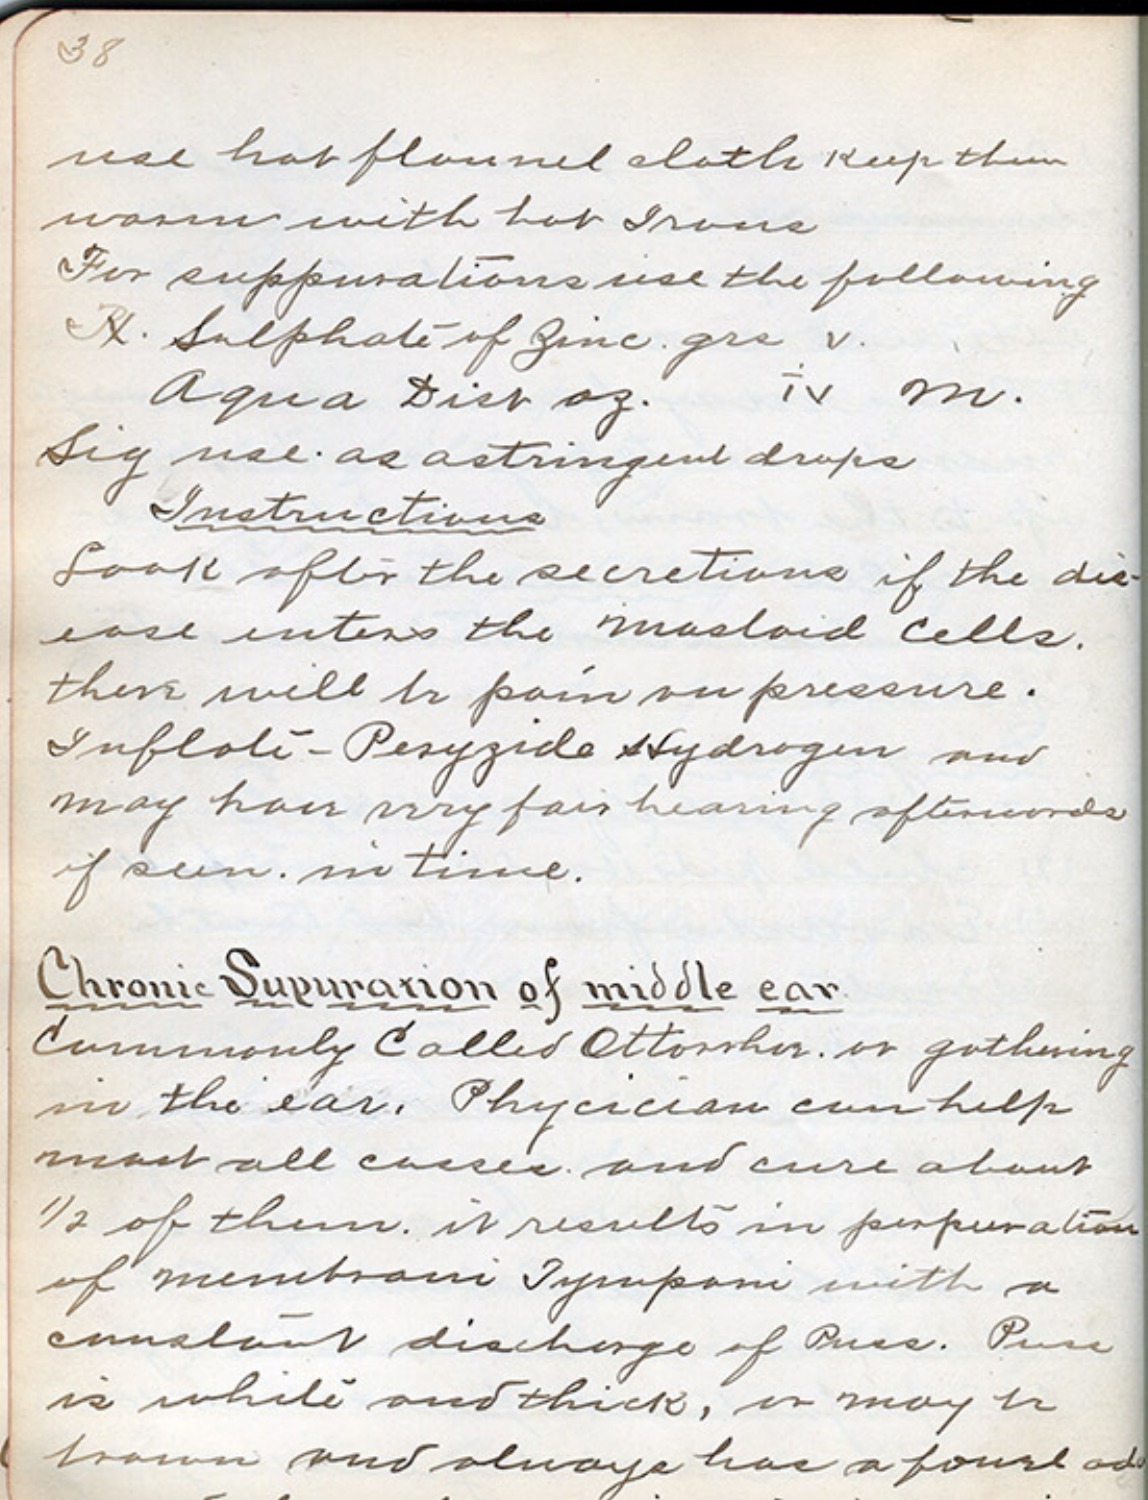 38
use hot flannel cloth keep them
warm with hot Irons
For suppurations use the following
Rx. Sulphate of Zinc. grs v.
Aqua Dist oz. iv M.
Sig use. as astringent drops
Instructions
Look after the secretions if the dis-
ease enters the mastoid cells.
there will be pain on pressure.
Inflate - Peryzide Hydrogen and
may have very fair hearing afterwords
if seen. in time.
Chronic Supuration of middle ear
Commonly Called Ottorrhea. or gathering
in the ear. Phycician can help
most all casses. and cure about
1/2 of them. it results in perpuration
of membrani Tympani with a
constant discharge of Puss. Puss
is white and thick, or may be
brown and always has a fourl